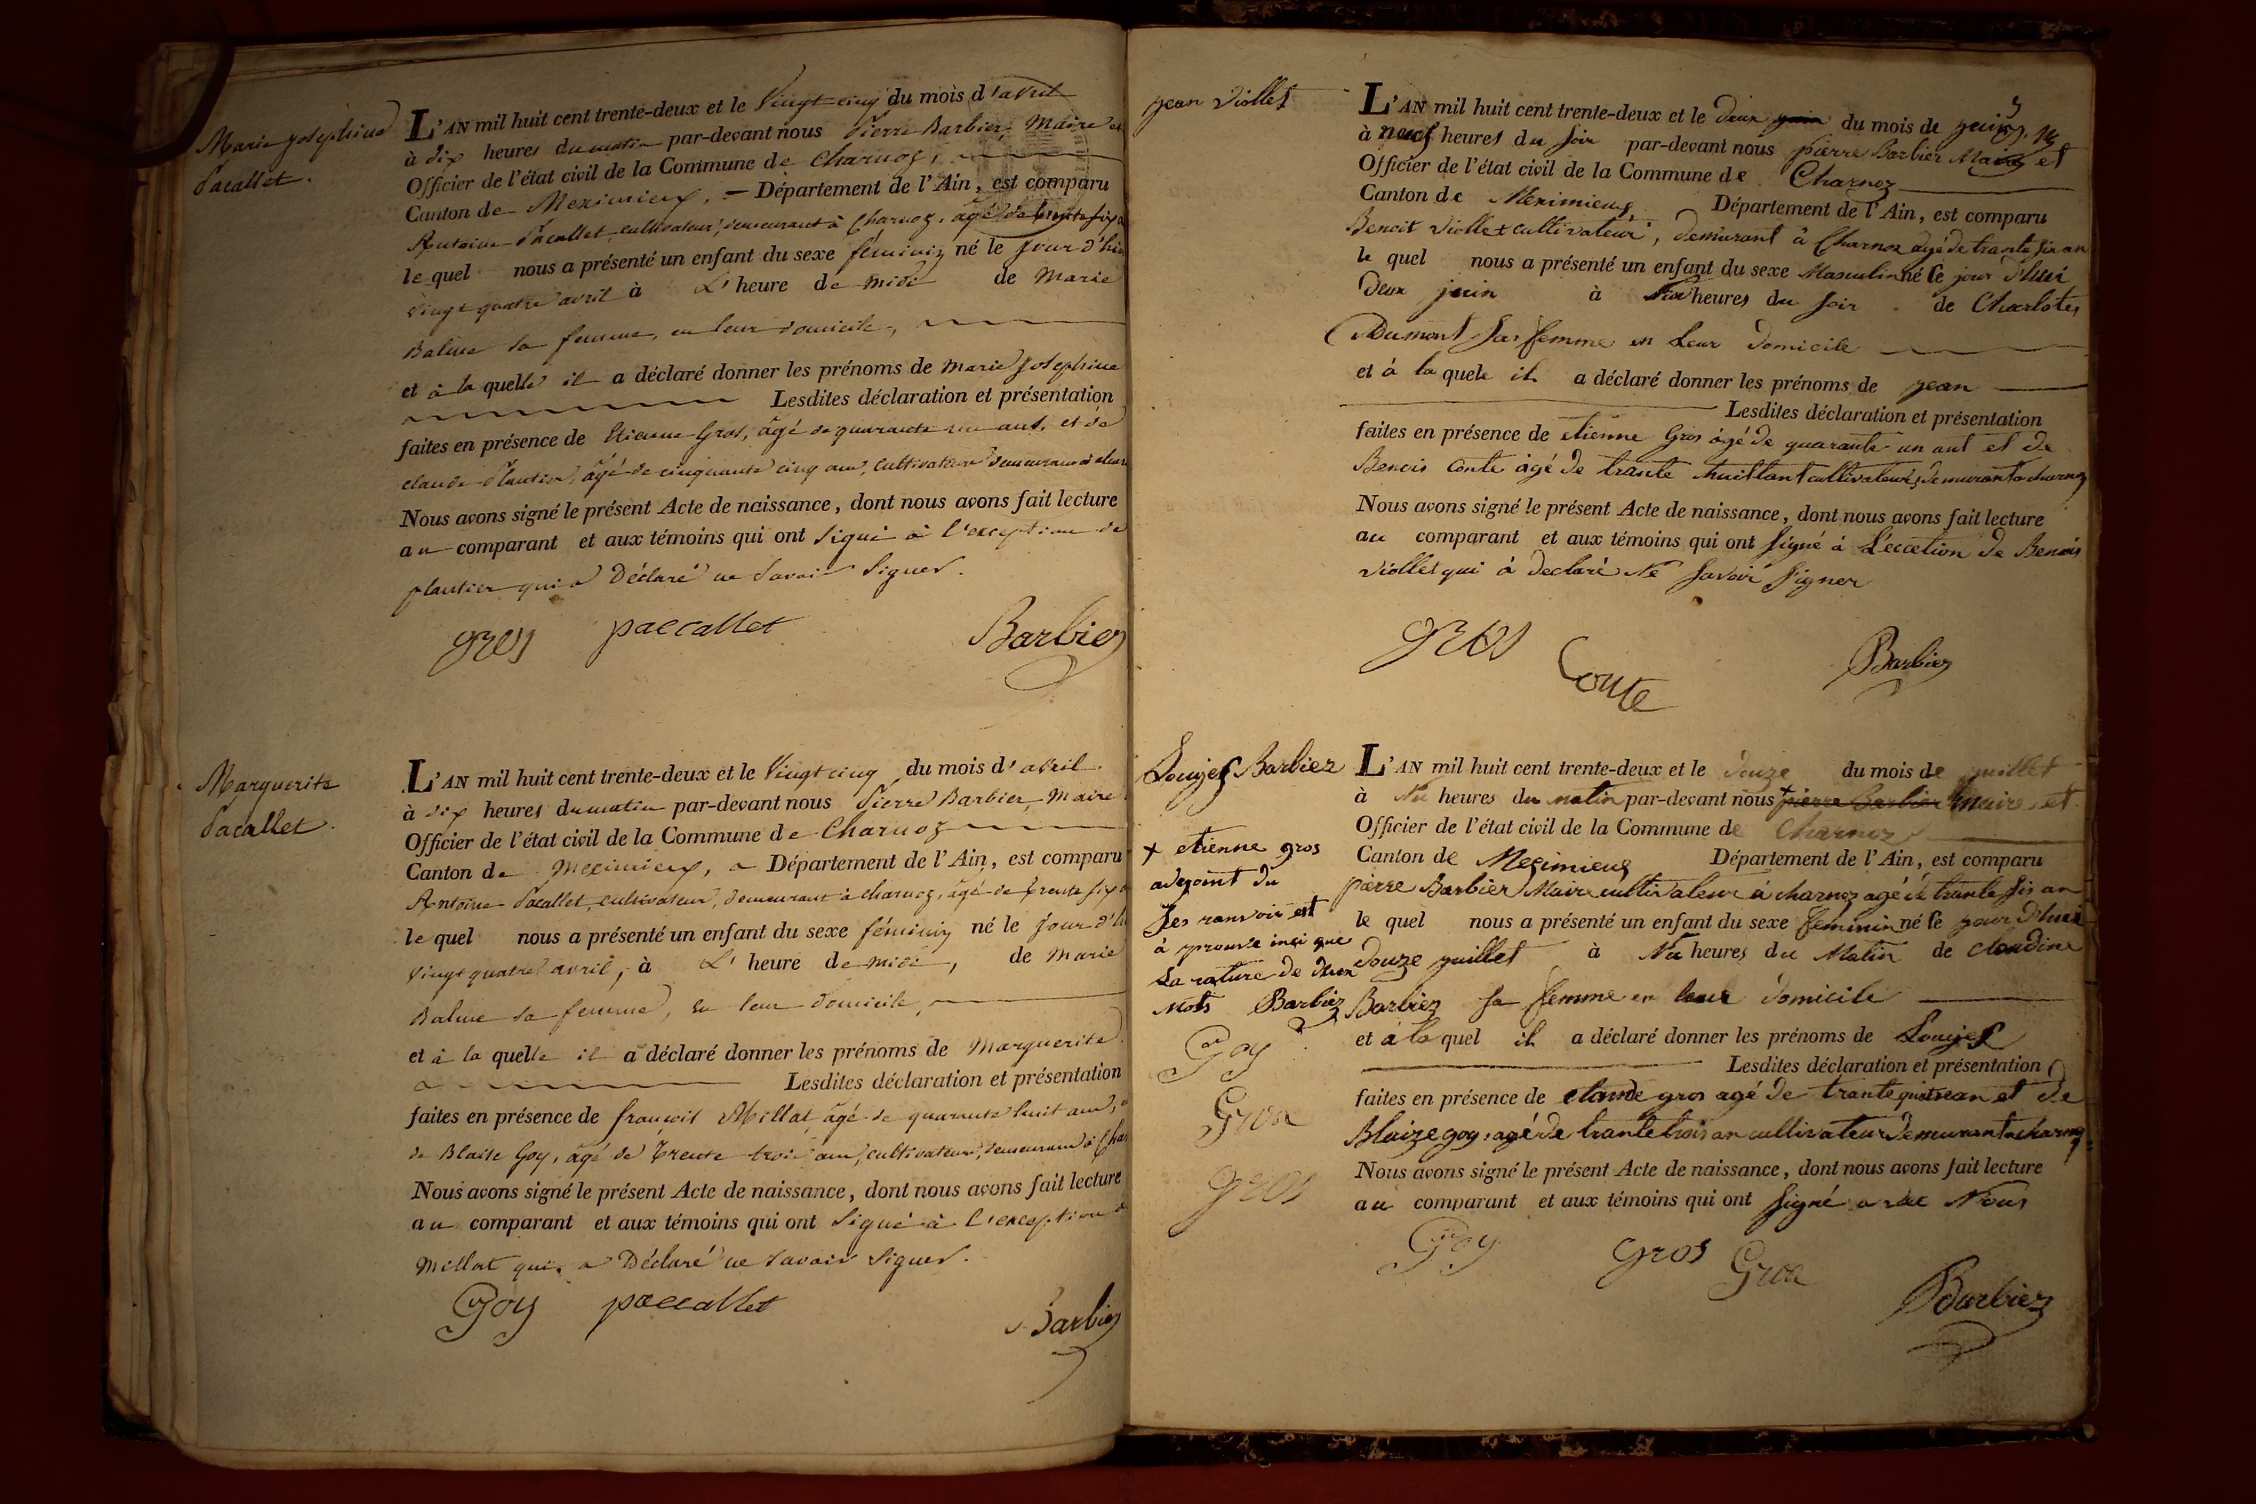 Marie josephine
Pacallet.
L'AN mil huit cent trente-deux et le Vingt cinq du mois d'avril
à dix heures du matin par-devant nous Pierre Barbier, Maire et
Officier de l'état civil de la Commune de Charnoz,
Canton de Meximieux, Département de l'Ain, est comparu
Antoine Pacallet, cultivateur, demeurant à Charnoz, âgé de trente six a
le quel nous a présenté un enfant du sexe féminin né le Jour d'hie
vingt quatre avril à L'heure de midi de Marie
Balme sa femme, en leur domicile,
et à la quelle il a déclaré donner les prénoms de marie Josephine
Lesdites déclaration et présentation
faites en présence de Etienne Gros, âgé de quarante un ans, et de
claude Plantier, âgé de cinquante cinq ans, cultivateurs demeurans à
Nous avons signé le présent Acte de naissance, dont nous avons fait lecture
au comparant et aux témoins qui ont signé à l'exception de
plantier qui a Déclaré ne savoir signer.
gros paccallet Barbier
Marguerite
Pacallet.
L'AN mil huit cent trente-deux et le Vingt cinq du mois d'avril
à dix heures du matin par-devant nous Pierre Barbier, Maire
Officier de l'état civil de la Commune de Charnoz
Canton de Meximieux, Département de l'Ain, est comparu
Antoine Pacallet, cultivateur, demeurant à charnoz, âgé de trente six a
le quel nous a présenté un enfant du sexe féminin né le Jour d'hi
vingt quatre avril, à L'heure de midi, de Marie
Balme sa femme, en leur domicile,
et à la quelle il a déclaré donner les prénoms de Marguerite
Lesdites déclaration et présentation
faites en présence de françois Millat âgé de quarante huit ans,
de Blaise Goy, âgé de Trente trois ans, cultivateurs, demeurans à Char
Nous avons signé le présent Acte de naissance, dont nous avons fait lecture
au comparant et aux témoins qui ont signé à l'exception d
Millat qui a Déclaré ne savoir signer.
Goy paccallet Barbier
jean Viollet
L'AN mil huit cent trente-deux et le deux juin du mois de juin
à neuf heures du soir par-devant nous pierre Barbier Maire et
Officier de l'état civil de la Commune de Charnoz
Canton de Meximieux Département de l'Ain, est comparu
Benoit Viollet cultivateur, demurant à Charnoz agé de trante six an
le quel nous a présenté un enfant du sexe Masculin né le jour d'hui
deux juin à heures du soir de Charlotes
Dumont sas femme en Leur domicile
et à la quele il a déclaré donner les prénoms de jean
Lesdites déclaration et présentation
faites en présence de etienne Gros agé de quarante un ant et de
Benois Conte agé de trante huit tant cultivateurs, demurant a charnoz
Nous avons signé le présent Acte de naissance, dont nous avons fait lecture
au comparant et aux témoins qui ont signé à L'eccetion de Benois
Viollet qui à declaré Ne savoir signer
gros Conte Barbier
Louijes Barbier
+ etienne gros
adejoint du
Jes ranvoir est
à prouve insi que
La rature de deux
Mots Barbier
Goy
Gros
gros
L'AN mil huit cent trente-deux et le douze du mois de juillet
à heures du matin par-devant nous + pierre Barbier maire et
Officier de l'état civil de la Commune de Charnoz
Canton de Meximieux Département de l'Ain, est comparu
pierre Barbier Maire cultivateur à charnoz agé de trante six an
le quel nous a présenté un enfant du sexe feminin né le jour d'hui
douze juillet à heures du Matin de claudine
Barbier sa femme en leur domicile
et à la quel il a déclaré donner les prénoms de Louijes
Lesdites déclaration et présentation
faites en présence de claude gros agé de trante quatre an et de
Blaize goy, agé de trante trois an cultivateur demurant a charnoz
Nous avons signé le présent Acte de naissance, dont nous avons fait lecture
au comparant et aux témoins qui ont signé avec Nous
Goy gros Gros Barbier